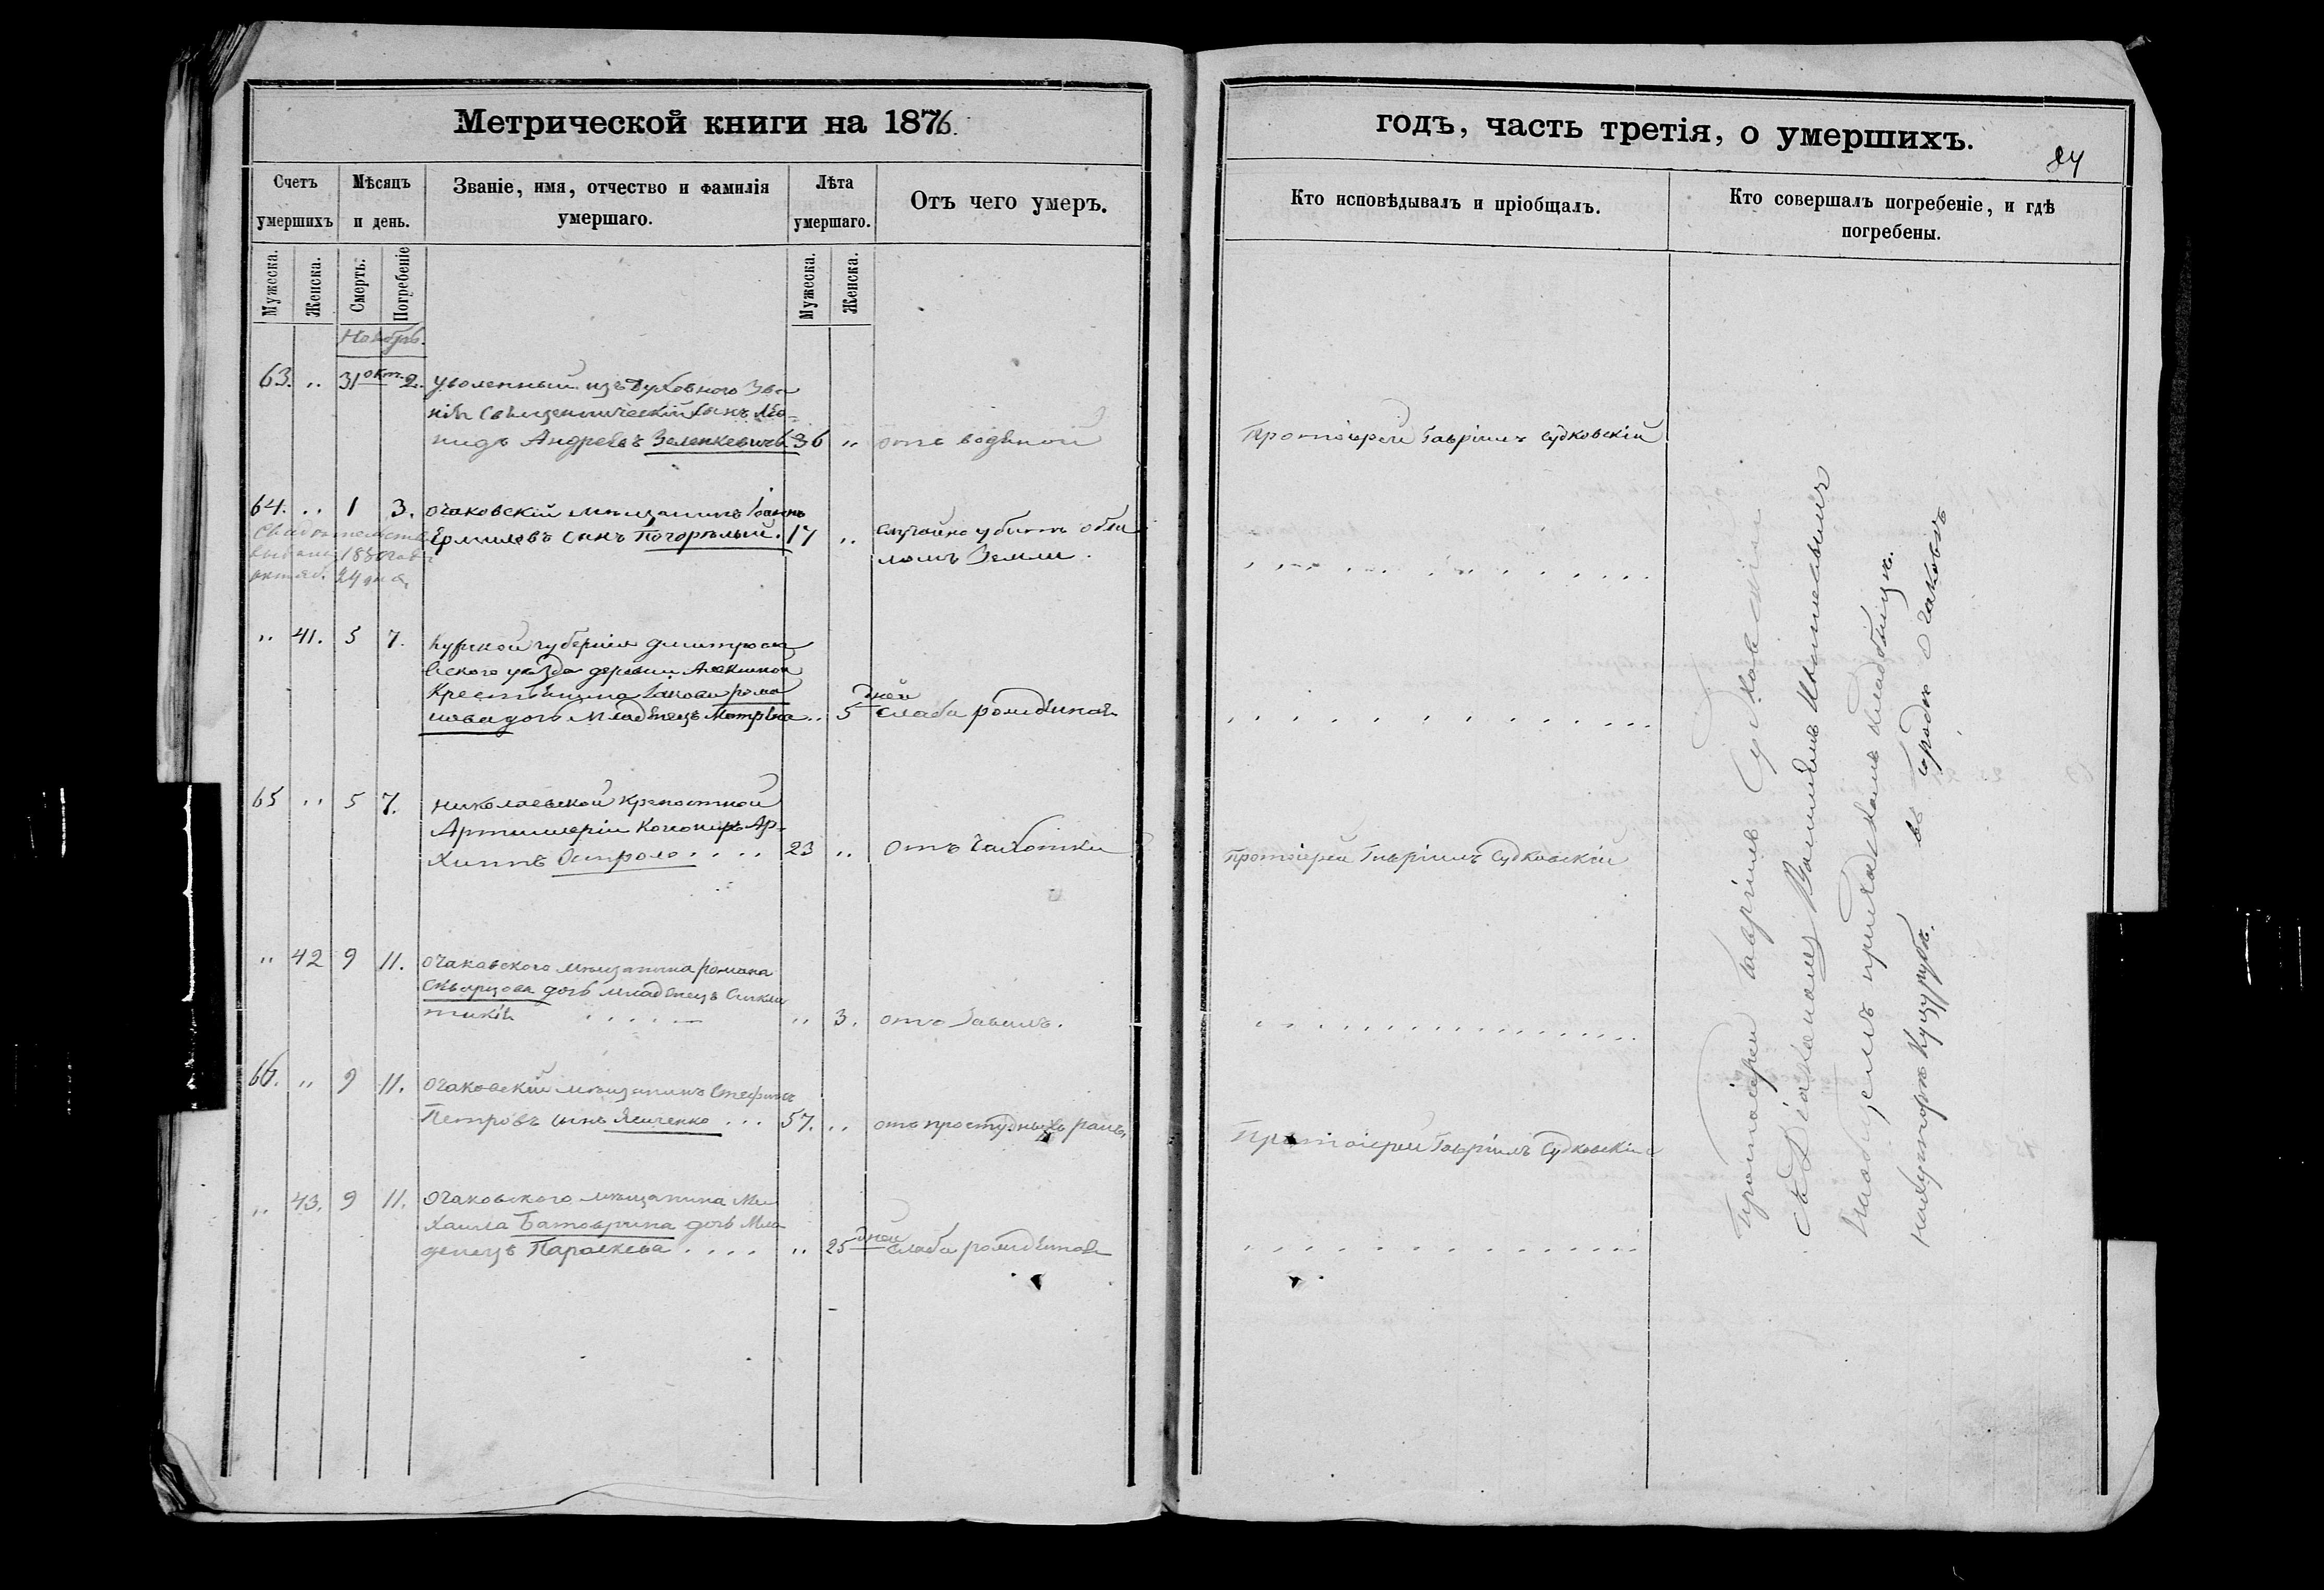 Метрической книги на 1876.
Счетъ умершихъ
Мѣсяцъ и день.
Званіе, имя, отчество и фамилія умершаго.
Лѣта умершаго.
Отъ чего умеръ.
Мужеска.
Женска.
Смерть.
Погребеніе
Мужеска.
Женска.
Ноябрь.
63. „ 31 окт. 2. уволенный изъ Духовного Зва
нія Священническій сынъ Лео=
нидъ Андреевъ Зеленкевичъ 36 „ отъ водяной
64. „ 1 3. очаковскій мѣщанинъ Іоаннъ
Ермиловъ сынъ Погорѣлый. 17 „ случайно убитъ обва
ломъ Земли.
Свидѣтельство
октяб. 24 дня
„ 41. 5 7. Курской губерніи Дмитровск
ского уѣзда деревни
Крестьянина Іакова Рома
нова дочь младенецъ Матрона „ 5 дней слаба рожденная
65 „ 5 7. Николаевской крепостной
Артиллеріи Канониръ Ар-
хиппъ . . . . 23 „ Отъ Чахотки
„ 42 9 11. Очаковского мѣщанина Романа
Скворцова дочь младенецъ Синкли
тикія . . . . . „ 3. отъ Завалъ.
66. „ 9 11. Очаковскій мѣщанинъ Стефанъ
Петровъ сынъ Ясиченко . . . 57. „ отъ простудныхъ ранъ
„ 43. 9 11. Очаковского мѣщанина Ми
хаила дочь Мла
денецъ Параскева . . . . „ 25 дней слаба рожденная
годъ, часть третія, о умершихъ.
84
Кто исповѣдывалъ и пріобщалъ.
Кто совершалъ погребеніе, и гдѣ погребены.
Протоіерей Гавріилъ Судковскій
Протоіерей Гавріилъ Судковскій
Протоіерей Гавріилъ Судковскій
Протоіерей Гавріилъ Судковскій
съ Діакономъ
на приходскомъ кладбищѣ.
въ городѣ Очаковѣ